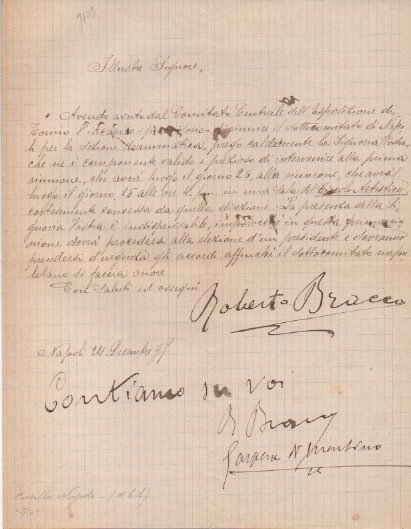 Illustre Signore,
Avendo avuto dal Comitato Centrale dell'Esposizione di
Torino l'incarico di riunire il sottocomitato di Napo-
li per la sezione Drammatica, prego caldamente la Signoria Vostra,
che ne è componente valido e prezioso di intervenire alla prima
riunione, che avrà luogo il giorno 26, alla riunione, che avrà
luogo il giorno 26 alle ore 4 p. in una sala del Circolo Artistico
cortesemente concessa da quella direzione. La presenza della Si-
gnoria Vostra è indispensabile, in questa prima riu-
nione dovrà procedersi alla elezione d'un presidente e dovranno
prendersi d'urgenza gli accordi affinché il sottocomitato napo-
letano si faccia onore.
Con saluti ed ossequi
Roberto Bracco
Napoli 24 Dicembre 97
Contiamo su voi
R Bracco